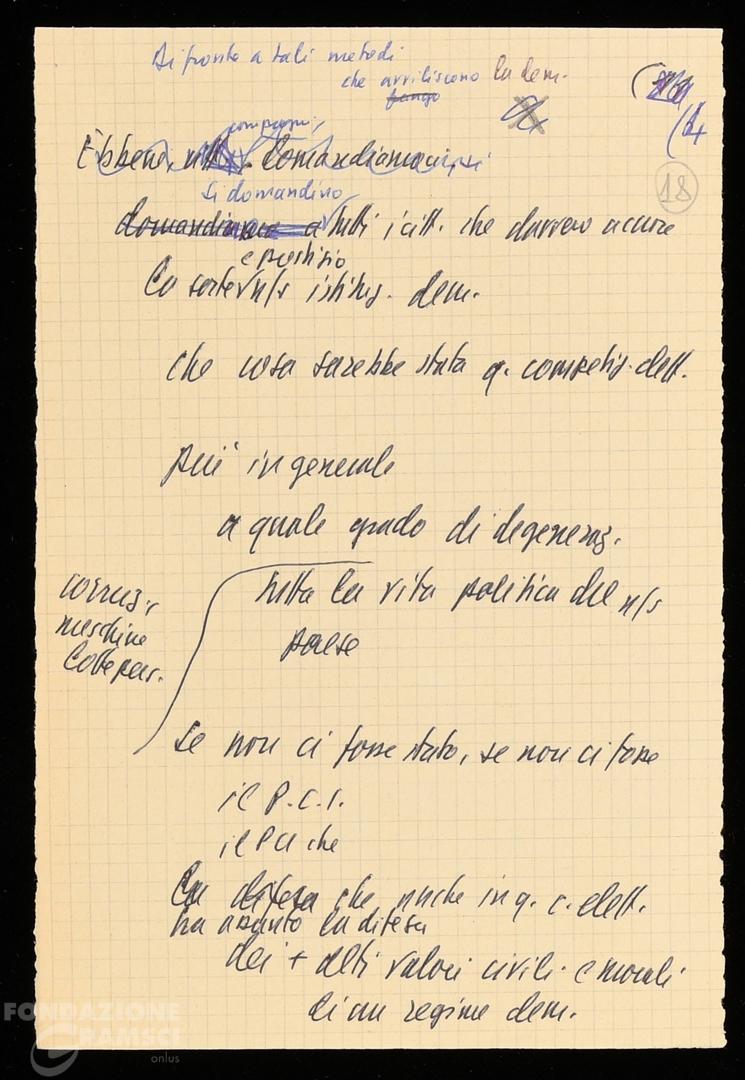 Di fronte a tali metodi
che avviliscono la dem.
fango
compagni,
Ebbene, . domandiamoci,
si domandino
domandiamo a tutti i citt. che davvero a cuore
e prestigio
la sorte n/s istituz. dem.
che cosa sarebbe stata q. competiz. elett.
più in generale
a quale grado di degeneraz.
corruz.,
meschine
lotte per.
tutta la vita politica del n/s
paese
se non ci fosse stato, se non ci fosse
il P.C.I.
il PCI che
la difesa che anche in q. c. elett.
ha assunto la difesa
dei + alti valori civili e morali
di un regime dem.
18
FONDAZIONE
GRAMSCI
onlus